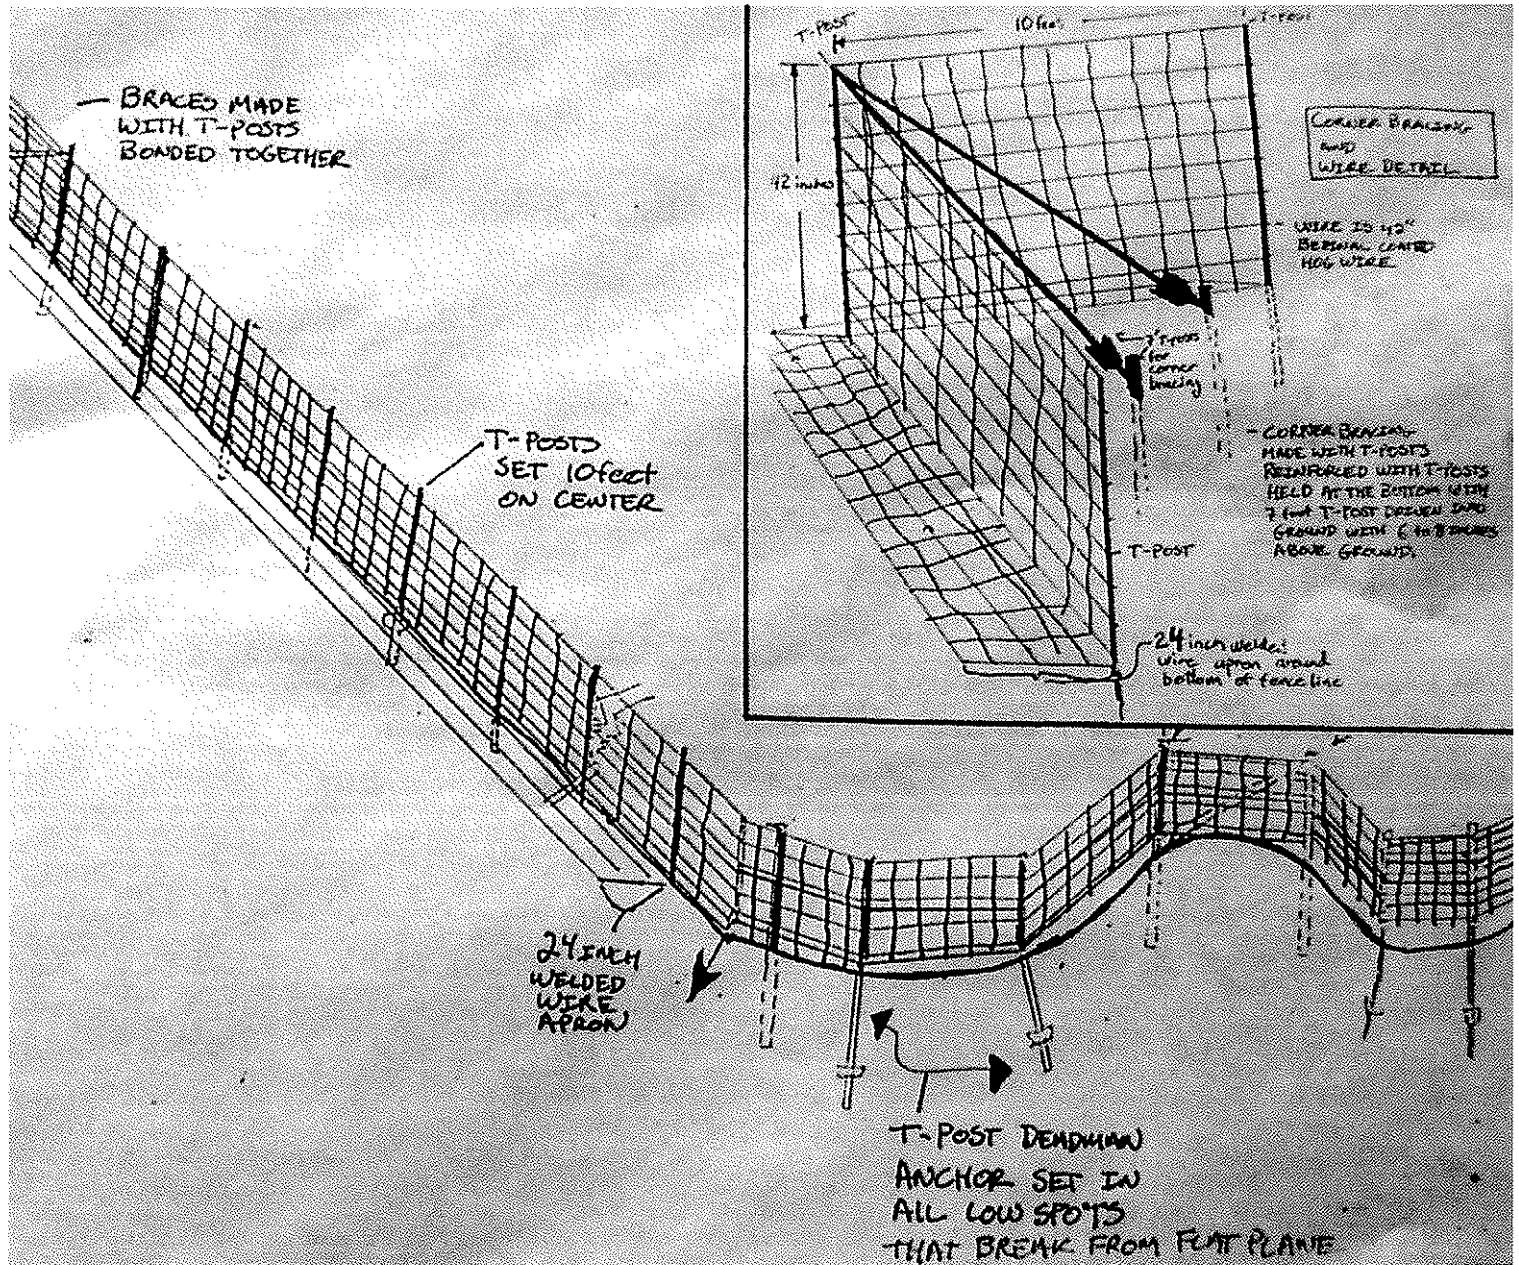 BRACES MADE
WITH T-POSTS
BONDED TOGETHER
T-POSTS
SET 10 feet
ON CENTER
24 INCH
WELDED
WIRE
APRON
T-POST DEADMAN
ANCHOR SET IN
ALL LOW SPOTS
THAT BREAK FROM FLAT PLANE
T-POST
10 feet
T-POST
42 inches
CORNER BRACING
AND
WIRE DETAIL
WIRE IS 42"
COATED
HOG WIRE
7' T-POSTS
for
corner
bracing
CORNER BRACING
MADE WITH T-POSTS
REINFORCED WITH T-POSTS
HELD AT THE BOTTOM WITH
7 foot T-POST DRIVEN INTO
GROUND WITH 6 to 8 INCHES
ABOVE GROUND.
T-POST
24 inch welded
wire apron around
bottom of fence line